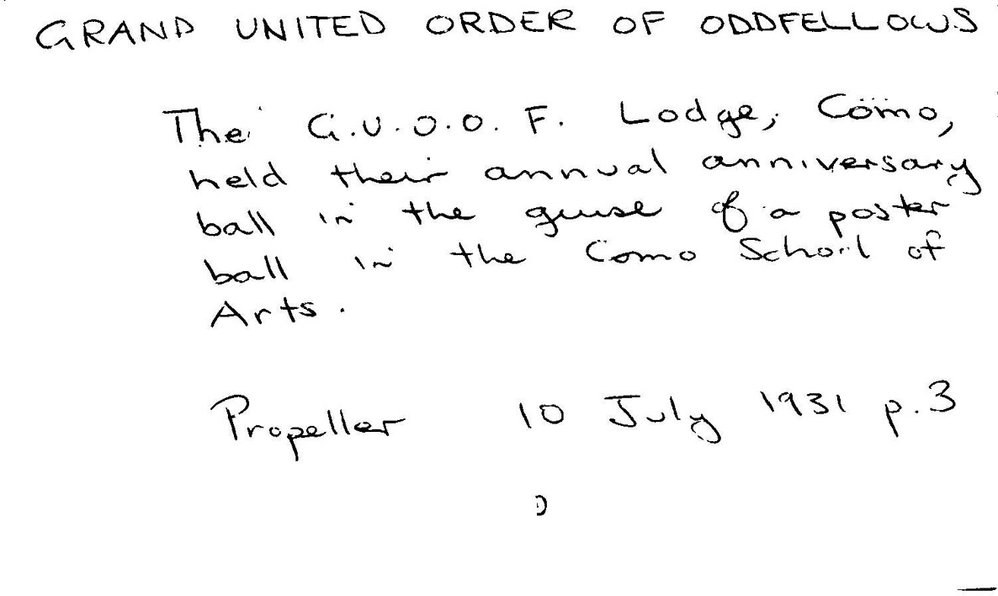 GRAND UNITED ORDER OF ODDFELLOWS
The G.U.O.O.F. Lodge, Como,
held their annual anniversary
ball in the guise of a poster
ball in the Como School of
Arts.
Propeller 10 July 1931 p.3